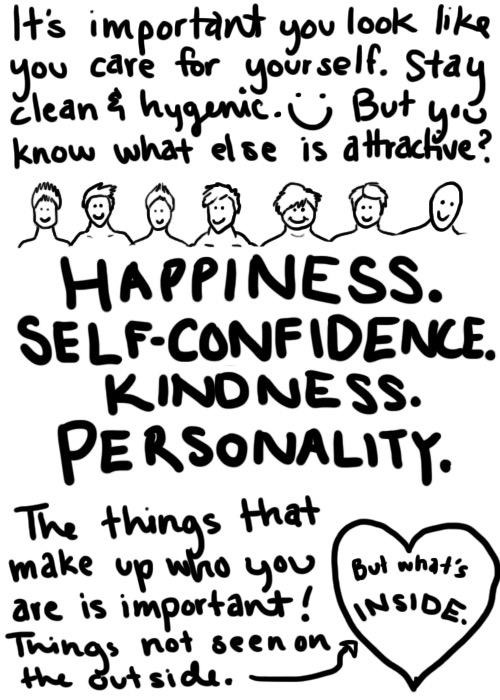 It's important you look like
you care for yourself. Stay
clean & hygenic. But you
know what else is attractive?
HAPPINESS.
SELF-CONFIDENCE.
KINDNESS.
PERSONALITY.
The things that
make up who you
are is important!
Things not seen on
the outside.
But what's
INSIDE.